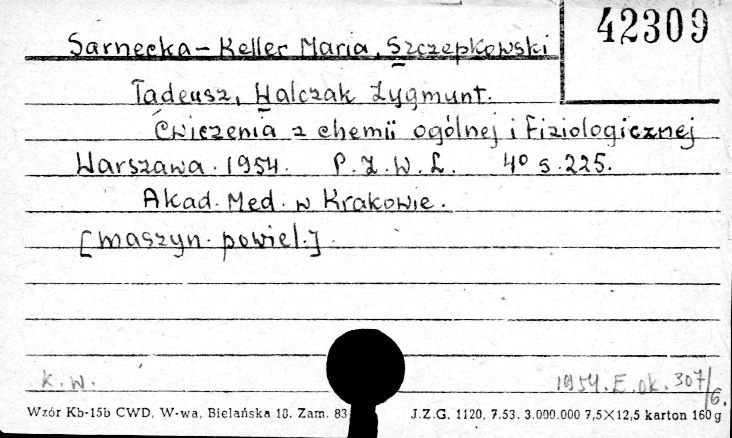 42309
Sarnecka-Keller Maria, Szczepkowski
Tadeusz, Walczak Zygmunt.
Ćwiczenia z chemii ogólnej i fizjologicznej
Warszawa. 1954. P.Z.W.L. 4° s. 225.
Akad. Med. w Krakowie.
[maszyn. powiel.]
K.W. 1954. E. ok. 307/6.
Wzór Kb-15b CWD, W-wa, Bielańska 18. Zam. 83 J.Z.G. 1120, 7.53. 3.000.000 7,5×12,5 karton 160 g